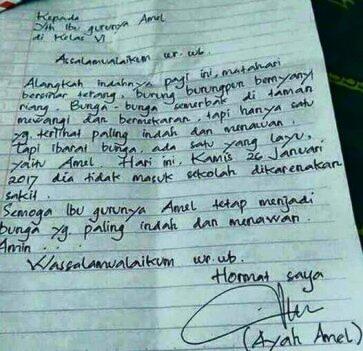 Kepada
Yth Ibu gurunya Amel
di Kelas VI
Assalamualaikum wr. wb.
Alangkah indahnya pagi ini, matahari
bersinar terang, burung burungpun bernyanyi
riang. Bunga-bunga semerbak di taman
mewangi dan bermekaran, tapi hanya satu
yg. terlihat paling indah dan menawan.
Tapi ibarat bunga, ada satu yang layu,
yaitu Amel. Hari ini, Kamis 26 Januari
2017 dia tidak masuk sekolah dikarenakan
sakit.
Semoga Ibu gurunya Amel tetap menjadi
bunga yg. paling indah dan menawan.
Amin...
Wassalamualaikum wr.wb.
Hormat saya
(Ayah Amel)